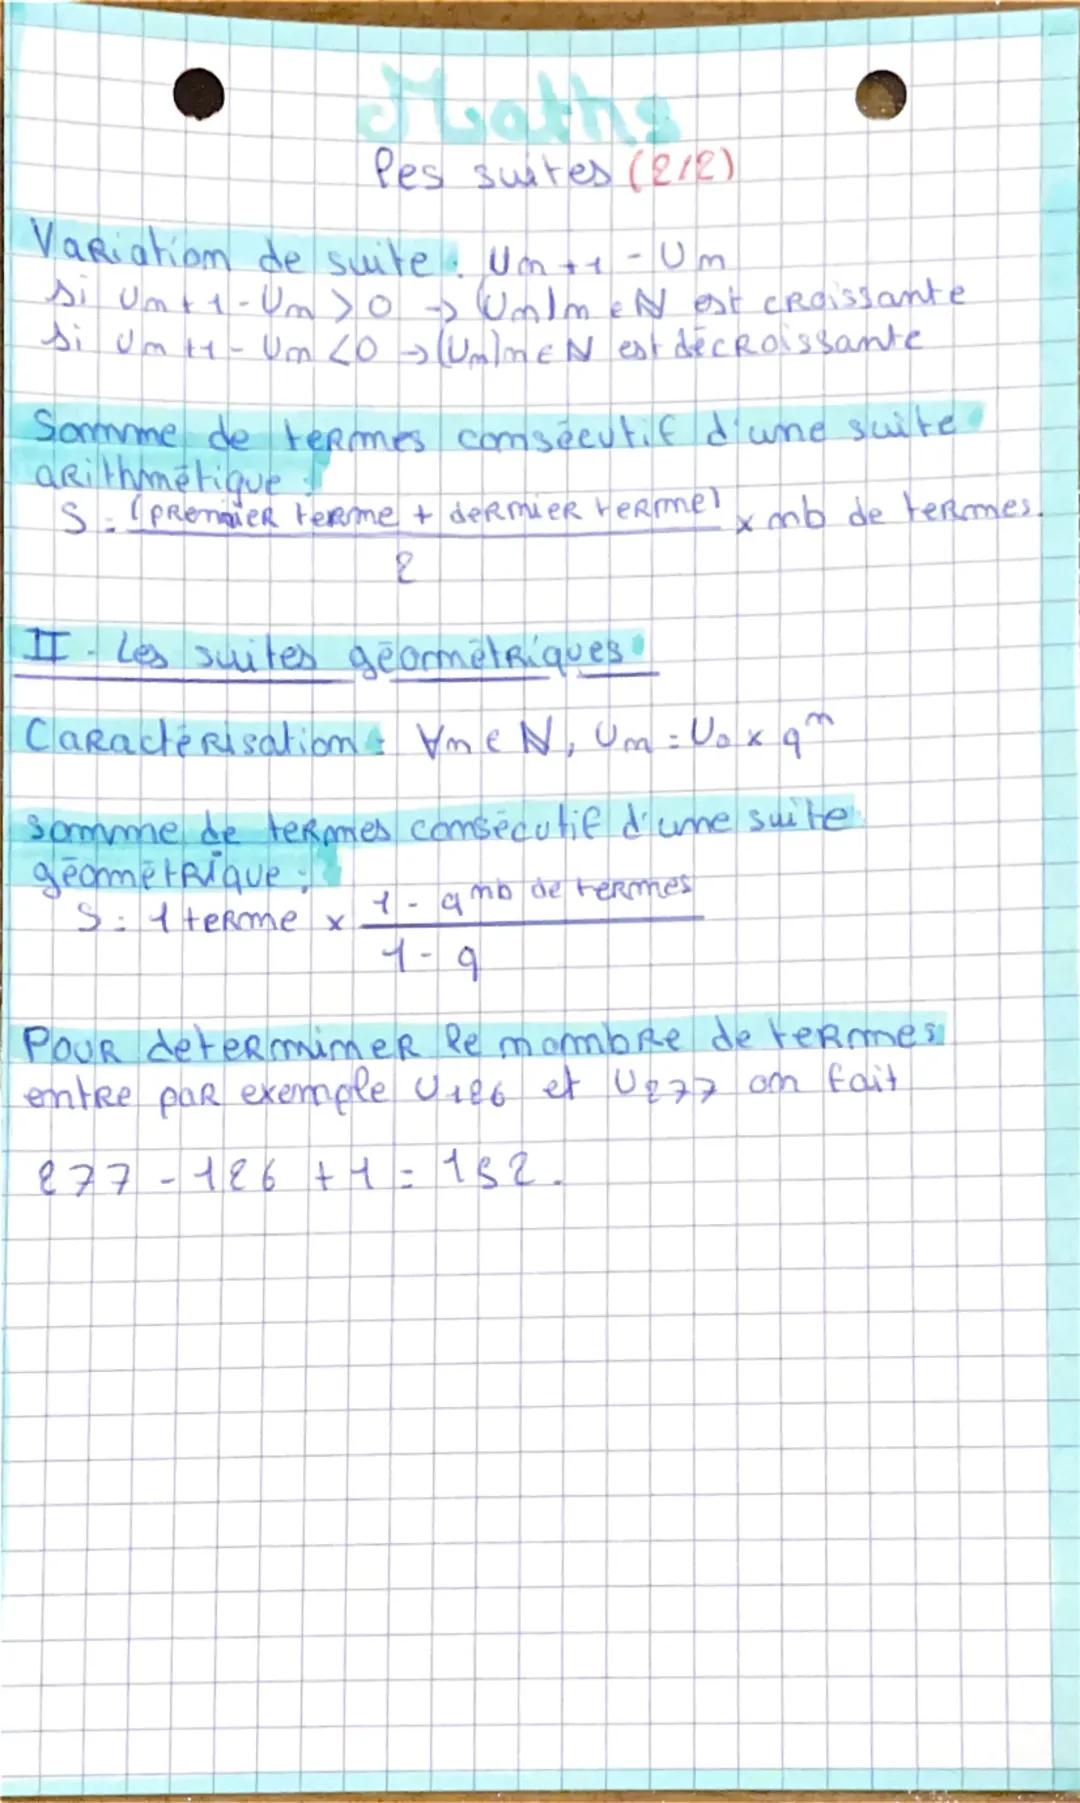 Maths
les suites (2/2)
Variation de suite : Un+1 - Un
si Un+1 - Un > 0 → (Un)n∈N est croissante
si Un+1 - Un < 0 → (Un)n∈N est décroissante
Somme de termes consécutif d'une suite
arithmétique :
S = (premier terme + dernier terme) / 2 × nb de termes.
II - Les suites géométriques
Caractérisation : ∀n∈N, Un = U0 × q^n
somme de termes consécutif d'une suite
géométrique :
S = 1 terme × (1 - q^nb de termes) / (1 - q)
Pour determiner le nombre de termes
entre par exemple U126 et U277 on fait
277 - 126 + 1 = 152.